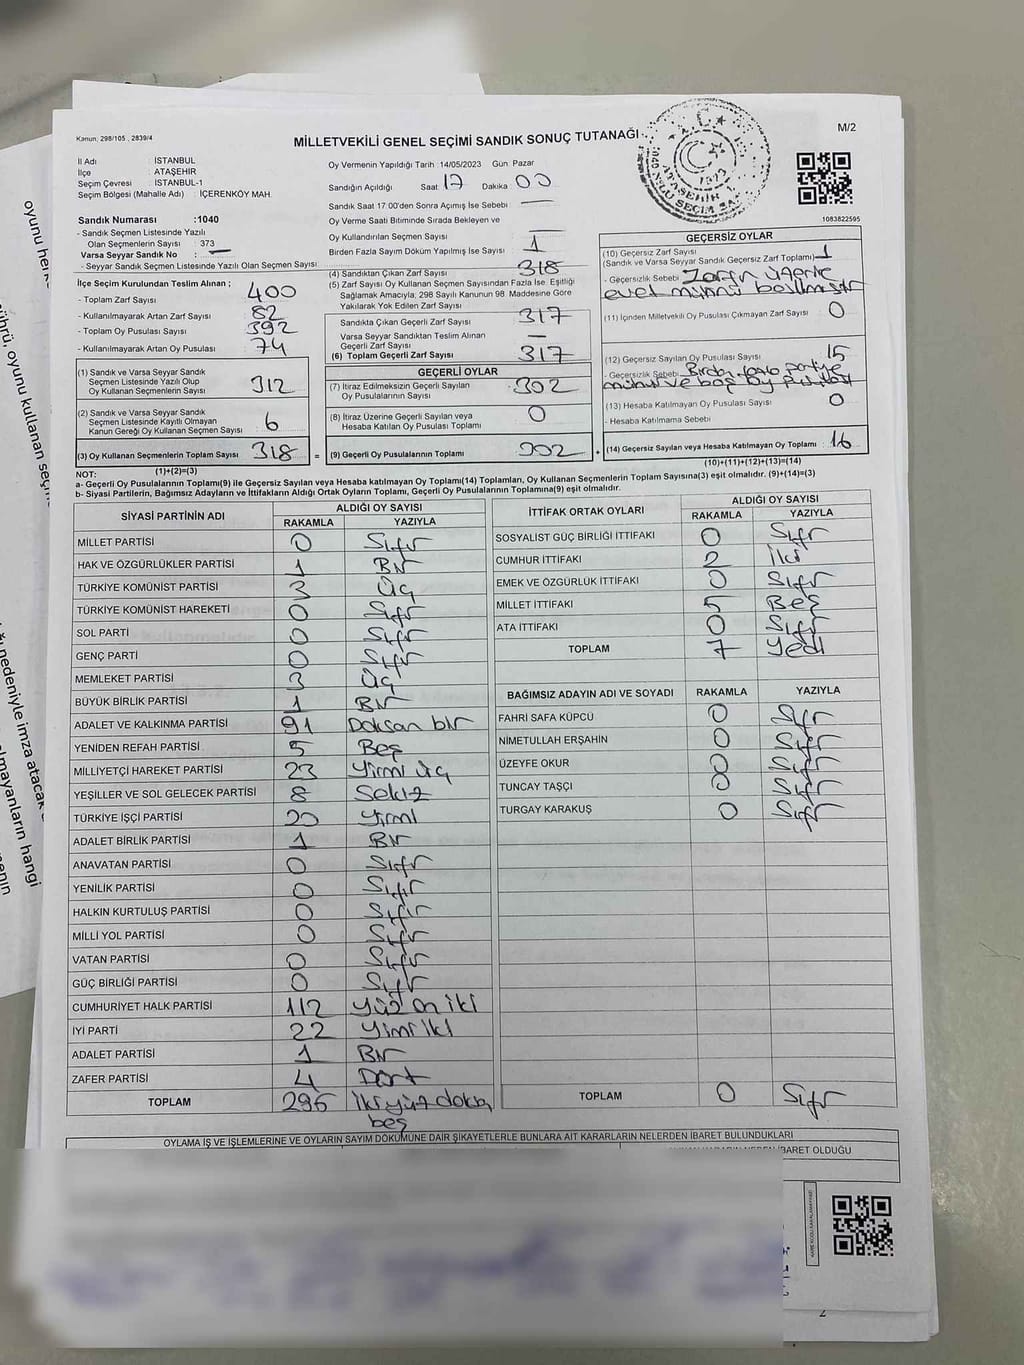 Kanun, 298/105 , 2839/4
MİLLETVEKİLİ GENEL SEÇİMİ SANDIK SONUÇ TUTANAĞI
M/2
İl Adı : İSTANBUL
İlçe : ATAŞEHİR
Seçim Çevresi : İSTANBUL-1
Seçim Bölgesi (Mahalle Adı) : İÇERENKÖY MAH.
Sandık Numarası :1040
- Sandık Seçmen Listesinde Yazılı
Olan Seçmenlerin Sayısı : 373
Varsa Seyyar Sandık No : —
- Seyyar Sandık Seçmen Listesinde Yazılı Olan Seçmen Sayısı
İlçe Seçim Kurulundan Teslim Alınan ;
- Toplam Zarf Sayısı : 400
- Kullanılmayarak Artan Zarf Sayısı : 82
- Toplam Oy Pusulası Sayısı : 392
- Kullanılmayarak Artan Oy Pusulası : 74
(1) Sandık ve Varsa Seyyar Sandık
Seçmen Listesinde Yazılı Olup
Oy Kullanan Seçmenlerin Sayısı : 312
(2) Sandık ve Varsa Seyyar Sandık
Seçmen Listesinde Kayıtlı Olmayan
Kanun Gereği Oy Kullanan Seçmen Sayısı : 6
(3) Oy Kullanan Seçmenlerin Toplam Sayısı : 318
(1)+(2)=(3)
Oy Vermenin Yapıldığı Tarih :14/05/2023 Gün: Pazar
Sandığın Açıldığı Saat 17 Dakika 00
Sandık Saat 17:00'den Sonra Açılmış İse Sebebi : —
Oy Verme Saati Bitiminde Sırada Bekleyen ve
Oy Kullandırılan Seçmen Sayısı : —
Birden Fazla Sayım Döküm Yapılmış İse Sayısı : 1
(4) Sandıktan Çıkan Zarf Sayısı : 318
(5) Zarf Sayısı Oy Kullanan Seçmen Sayısından Fazla İse, Eşitliği
Sağlamak Amacıyla; 298 Sayılı Kanunun 98. Maddesine Göre
Yakılarak Yok Edilen Zarf Sayısı :
Sandıkta Çıkan Geçerli Zarf Sayısı : 317
Varsa Seyyar Sandıktan Teslim Alınan
Geçerli Zarf Sayısı : —
(6) Toplam Geçerli Zarf Sayısı : 317
GEÇERLİ OYLAR
(7) İtiraz Edilmeksizin Geçerli Sayılan
Oy Pusulalarının Sayısı : 302
(8) İtiraz Üzerine Geçerli Sayılan veya
Hesaba Katılan Oy Pusulası Toplamı : 0
= (9) Geçerli Oy Pusulalarının Toplamı : 302 +
1083822595
GEÇERSİZ OYLAR
(10) Geçersiz Zarf Sayısı
(Sandık ve Varsa Seyyar Sandık Geçersiz Zarf Toplamı) : 1
- Geçersizlik Sebebi : Zarfın üzerine
evet mührü basılmıştır
(11) İçinden Milletvekili Oy Pusulası Çıkmayan Zarf Sayısı : 0
(12) Geçersiz Sayılan Oy Pusulası Sayısı : 15
- Geçersizlik Sebebi : Birden fazla partiye
mühür ve boş oy pusulası
(13) Hesaba Katılmayan Oy Pusulası Sayısı : 0
- Hesaba Katılmama Sebebi :
(14) Geçersiz Sayılan veya Hesaba Katılmayan Oy Toplamı : 16
(10)+(11)+(12)+(13)=(14)
NOT:
a- Geçerli Oy Pusulalarının Toplamı(9) ile Geçersiz Sayılan veya Hesaba katılmayan Oy Toplamı(14) Toplamları, Oy Kullanan Seçmenlerin Toplam Sayısına(3) eşit olmalıdır. (9)+(14)=(3)
b- Siyasi Partilerin, Bağımsız Adayların ve İttifakların Aldığı Ortak Oyların Toplamı, Geçerli Oy Pusulalarının Toplamına(9) eşit olmalıdır.
SİYASİ PARTİNİN ADI ALDIĞI OY SAYISI
RAKAMLA YAZIYLA
MİLLET PARTİSİ 0 Sıfır
HAK VE ÖZGÜRLÜKLER PARTİSİ 1 Bir
TÜRKİYE KOMÜNİST PARTİSİ 3 Üç
TÜRKİYE KOMÜNİST HAREKETİ 0 Sıfır
SOL PARTİ 0 Sıfır
GENÇ PARTİ 0 Sıfır
MEMLEKET PARTİSİ 3 Üç
BÜYÜK BİRLİK PARTİSİ 1 Bir
ADALET VE KALKINMA PARTİSİ 91 Doksan bir
YENİDEN REFAH PARTİSİ 5 Beş
MİLLİYETÇİ HAREKET PARTİSİ 23 Yirmi üç
YEŞİLLER VE SOL GELECEK PARTİSİ 8 Sekiz
TÜRKİYE İŞÇİ PARTİSİ 20 Yirmi
ADALET BİRLİK PARTİSİ 1 Bir
ANAVATAN PARTİSİ 0 Sıfır
YENİLİK PARTİSİ 0 Sıfır
HALKIN KURTULUŞ PARTİSİ 0 Sıfır
MİLLİ YOL PARTİSİ 0 Sıfır
VATAN PARTİSİ 0 Sıfır
GÜÇ BİRLİĞİ PARTİSİ 0 Sıfır
CUMHURİYET HALK PARTİSİ 112 Yüz on iki
İYİ PARTİ 22 Yirmi iki
ADALET PARTİSİ 1 Bir
ZAFER PARTİSİ 4 Dört
TOPLAM 295 İki yüz doksan
beş
İTTİFAK ORTAK OYLARI ALDIĞI OY SAYISI
RAKAMLA YAZIYLA
SOSYALİST GÜÇ BİRLİĞİ İTTİFAKI 0 Sıfır
CUMHUR İTTİFAKI 2 İki
EMEK VE ÖZGÜRLÜK İTTİFAKI 0 Sıfır
MİLLET İTTİFAKI 5 Beş
ATA İTTİFAKI 0 Sıfır
TOPLAM 7 Yedi
BAĞIMSIZ ADAYIN ADI VE SOYADI RAKAMLA YAZIYLA
FAHRİ SAFA KÜPCÜ 0 Sıfır
NİMETULLAH ERŞAHİN 0 Sıfır
ÜZEYFE OKUR 0 Sıfır
TUNCAY TAŞÇI 0 Sıfır
TURGAY KARAKUŞ 0 Sıfır
TOPLAM 0 Sıfır
OYLAMA İŞ VE İŞLEMLERİNE VE OYLARIN SAYIM DÖKÜMÜNE DAİR ŞİKAYETLERLE BUNLARA AİT KARARLARIN NELERDEN İBARET BULUNDUKLARI
İBARET OLDUĞU
oyunu kullanan
nedeniyle imza atacak
olmayanların hangi
2